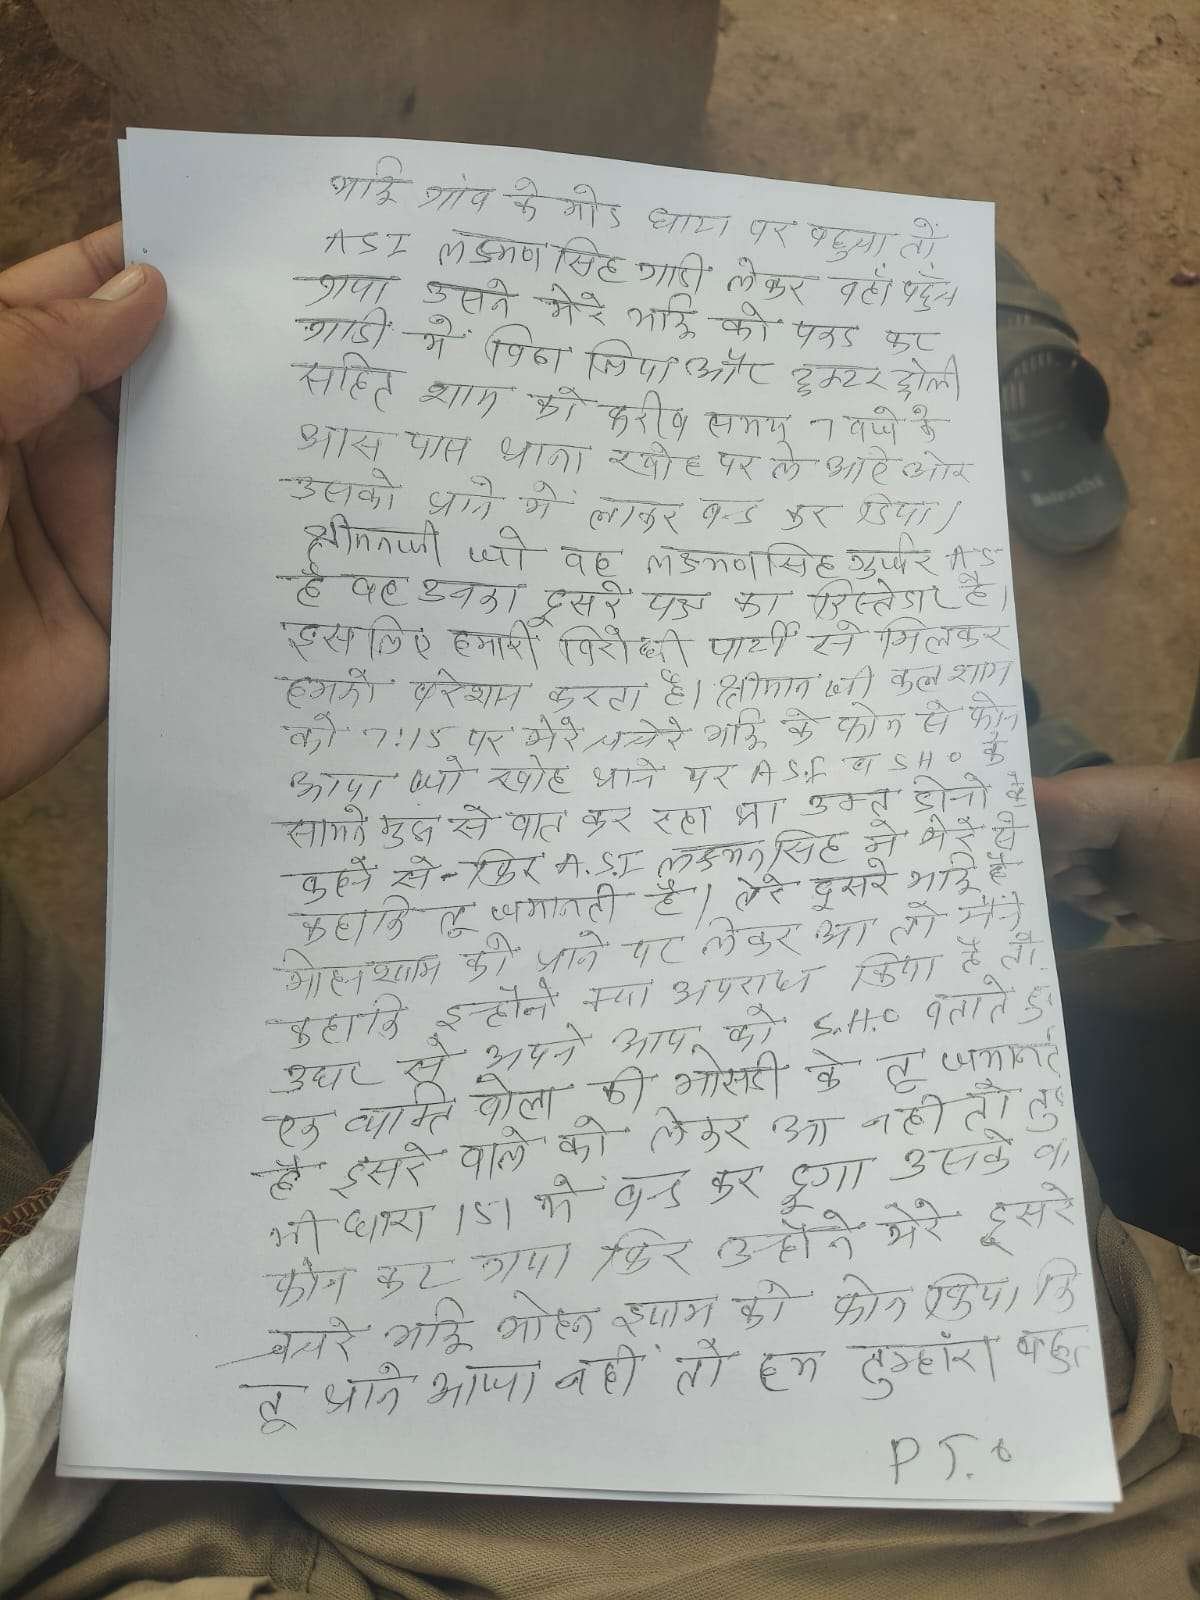 भाई गांव के मोड धाम पर पहुचा तों
ASI लक्ष्मण सिह गाडी लेकर वहाँ पहुँच
गया उसने मेरे भाई को पकड कर
गाडी में बिठा लिया और ट्रेक्टर ट्रोली
सहित शाम को करीब समय 7 बजे के
आस पास थाना खोह पर ले आऐ ओर
उसको थाने में लाकर बन्ड कर दिया।
श्रीमानजी जो वह लक्ष्मणसिह गुर्जर AS
है वह उनका दूसरे पक्ष का रिस्तेदार है।
इसलिए हमारी विरोधी पार्टी से मिलकर
हमको परेशान करता है। श्रीमान जी कल शाम
को 7:15 पर मेरे चचेरे भाई के फोन से फोन
आया जो खोह थाने पर A.S.I व S.H.O के
सामने मुझ से बात कर रहा था उक्त दोनो के
कहने से- फिर A.S.I लक्ष्मन सिह ने मेरे से
कहा कि तू जमानती है। तेरे दूसरे भाई है
मोहनश्याम को थाने पर लेकर आ तो मैंने
कहा कि इन्होंने क्या अपराध किया है तो
उधर से अपने आप को S.H.O बताते हु
एक व्यक्ति बोला की भोसडी के तू जमानत
है दूसरे वाले को लेकर आ नही तो तु
भी धारा 151 में बन्ड कर दूगा उसके बा
फोन कट गया फिर उन्होंने मेरे दूसरे
चचरे भाई मोहन श्याम को फोन किया कि
तू थाने आजा नहीं तो हम तुम्हारा बहुत
P T. O